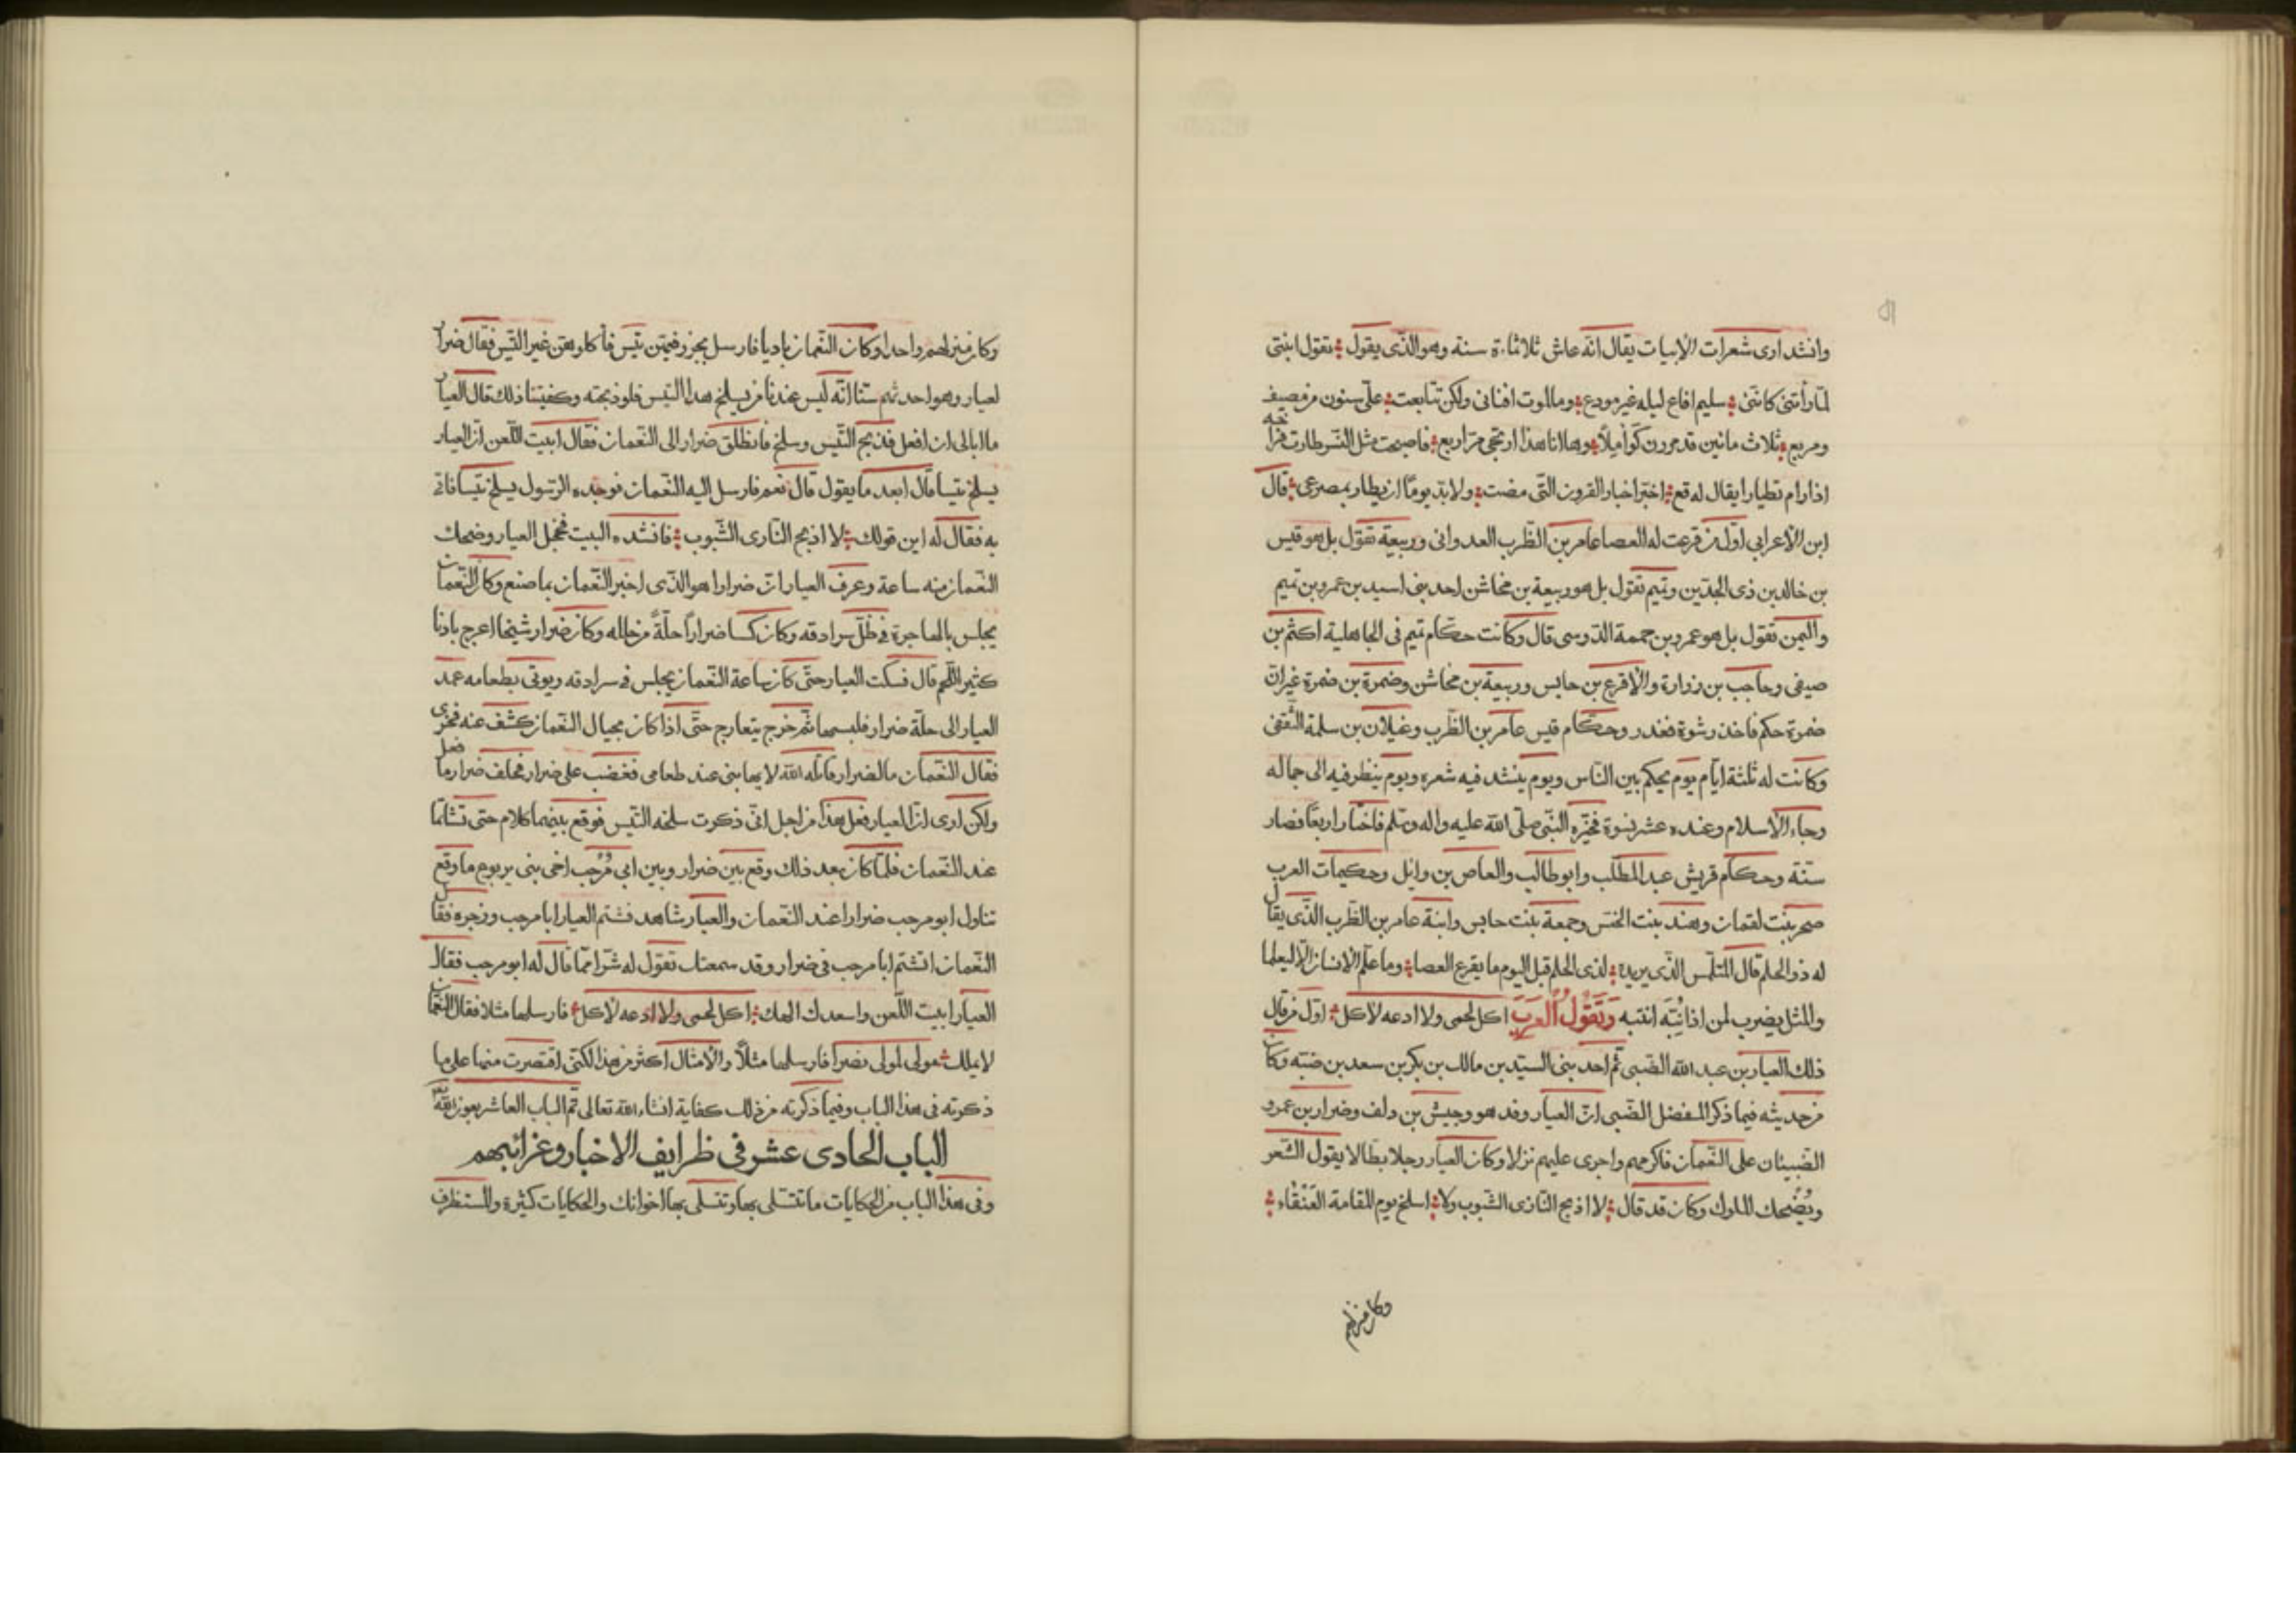 وانشد اری شعرات الابيات يقال انّه عاش ثلاثماءة سنة وهو الذّی يقول تقول ابنتی
لمّا رأتنی كانّنی سليم افاع ليله غير مودع وما الموت افنانی ولكن تتابعت علیّ سنون من مصيف
ومربع ثلاث مائين قد مررن كواملاً وها انا هذا ارتجی مرّ اربع فاصبحت مثل النّسر طارت فراخه
اذا رام تطيارا يقال له قع اخبّر اخبار القرون التّی مضت ولا بدّ يومًا ان يطار بمصرعی قال
ابن الاعرابی اوّل من قرعت له العصا عامر بن الظّرب العدوانی وربيعة تقول بل هو قيس
بن خالد بن ذی الجدّين وتميم تقول بل هو ربيعة بن مخاشن احد بنی اسيد بن عمرو بن تميم
واليمن تقول بل هو عمرو بن حممة الدّوسی قال وكانت حكّام تميم فی الجاهلية اكثم بن
صيفی وحاجب بن زرارة والاقرع بن حابس وربيعة بن مخاشن وضمرة بن ضمرة غير انّ
ضمرة حكم فاخذ رشوة فغدر وحكّام قيس عامر بن الظّرب وغيلان بن سلمة الثّقفی
وكانت له ثلثة ايّام يوم يحكم بين النّاس ويوم ينشد فيه شعره ويوم ينظر فيه الی جماله
وجاء الاسلام وعنده عشر نسوة فخيّره النّبی صلّی الله عليه واله وسلّم فاختار اربعًا فصار
سنّة وحكّام قريش عبد المطّلب وابو طالب والعاص بن وايل وحكيمات العرب
صحر بنت لقمان وهند بنت الخسّ وجمعة بنت حابس وابنة عامر بن الظّرب الذّی يقال
له ذو الحلم قال المتلمّس الذّی يريده لذی الحلم قبل اليوم ما يقرع العصا وما علّم الانسان الّا ليعلما
والمثل يضرب لمن اذا نُبِّهَ انتبه وَتَقُولُ العَرَبُ اكل لحمی ولا ادعه لاكل اوّل من قال
ذلك العيار بن عبد الله الضّبی ثم احد بنی السيّد بن مالك بن بكر بن سعد بن ضبّه وكان
من حديثه فيما ذكر المفضل الضّبی انّ العيار وفد هو وحبيش بن دلف وضرار بن عمرو
الضّبيّان علی النّعمان فاكرمهم واجری عليهم نزلا وكان العيار رجلا بطّالا يقول الشّعر
ويُضحك الملوك وكان قد قال لا اذبح النّازی الشّبوب ولا اسلخ يوم المقامة العُنُقاء
وكان منزلهم
وكان منزلهم واحدا وكان النّعمان باديا فارسل بجزر فيهنّ تيس فأكلوهنّ غير التّيس فقال ضرار
لعيار وهو احدثهم سنّا انّه ليس عندنا من يسلخ هذا التّيس فلو ذبحته وكفيتنا ذلك قال العيار
ما ابالی ان افعل فذبح التّيس وسلخ فانطلق ضرار الی النّعمان فقال ابيت اللّعن انّ العيار
يسلخ تيسا قال ابعد ما يقول قال نعم فارسل اليه النّعمان فوجده الرّسول يسلخ تيسا فاتی
به فقال له اين قولك لا اذبح النّازی الشّبوب فانشده البيت فخجل العيار وضحك
النّعمان منه ساعة وعرف العيار انّ ضرارا هو الذّی اخبر النّعمان بما صنع وكان النّعمان
يجلس بالهاجرة فی ظلّ سرادقه وكان كسا ضراراً حلّةً من حلله وكان ضرار شيخا اعرج بادنا
كثير اللّحم قال فسكت العيار حتّی كان ساعة النّعمان يجلس فی سرادقه ويوتی بطعامه عمد
العيار الی حلّة ضرار فلبسها ثمّ خرج يتعارج حتّی اذا كان بحيال النّعمان كشف عنه فخری
فقال النّعمان ما لضرار قاتله الله لا يهابنی عند طعامی فغضب علی ضرار فحلف ضرار ما فعل
ولكن اری انّ العيار فعل هذا من اجل انّی ذكرت سلخه التّيس فوقع بينهما كلام حتی تشاتما
عند النّعمان فلمّا كان بعد ذلك وقع بين ضرار وبين ابی مرحب اخی بنی يربوع ما وقع
تناول ابو مرحب ضرارا عند النّعمان والعيار شاهد فشتم العيار ابا مرحب وزجره فقال
النّعمان اتشتم ابا مرحب فی ضرار وقد سمعتك تقول له شرّا ممّا قال له ابو مرحب فقال
العيار ابيت اللّعن واسعدك الهك اكل لحمی ولا ادعه لاكل فارسلها مثلا فقال النّعمان
لا يملك مولی لمولی نصرا فارسلها مثلاً والامثال اكثر من هذا لكنّی اقتصرت منها علی ما
ذكرته فی هذا الباب وفيما ذكرته من ذلك كفاية انشاء الله تعالی تمّ الباب العاشر بعون الله
الباب الحادی عشر فی ظرايف الاخبار وغرائبهم
وفی هذا الباب من الحكايات ما تتسلّی بها وتسلی بها اخوانك والحكايات كثيرة والمستظرف